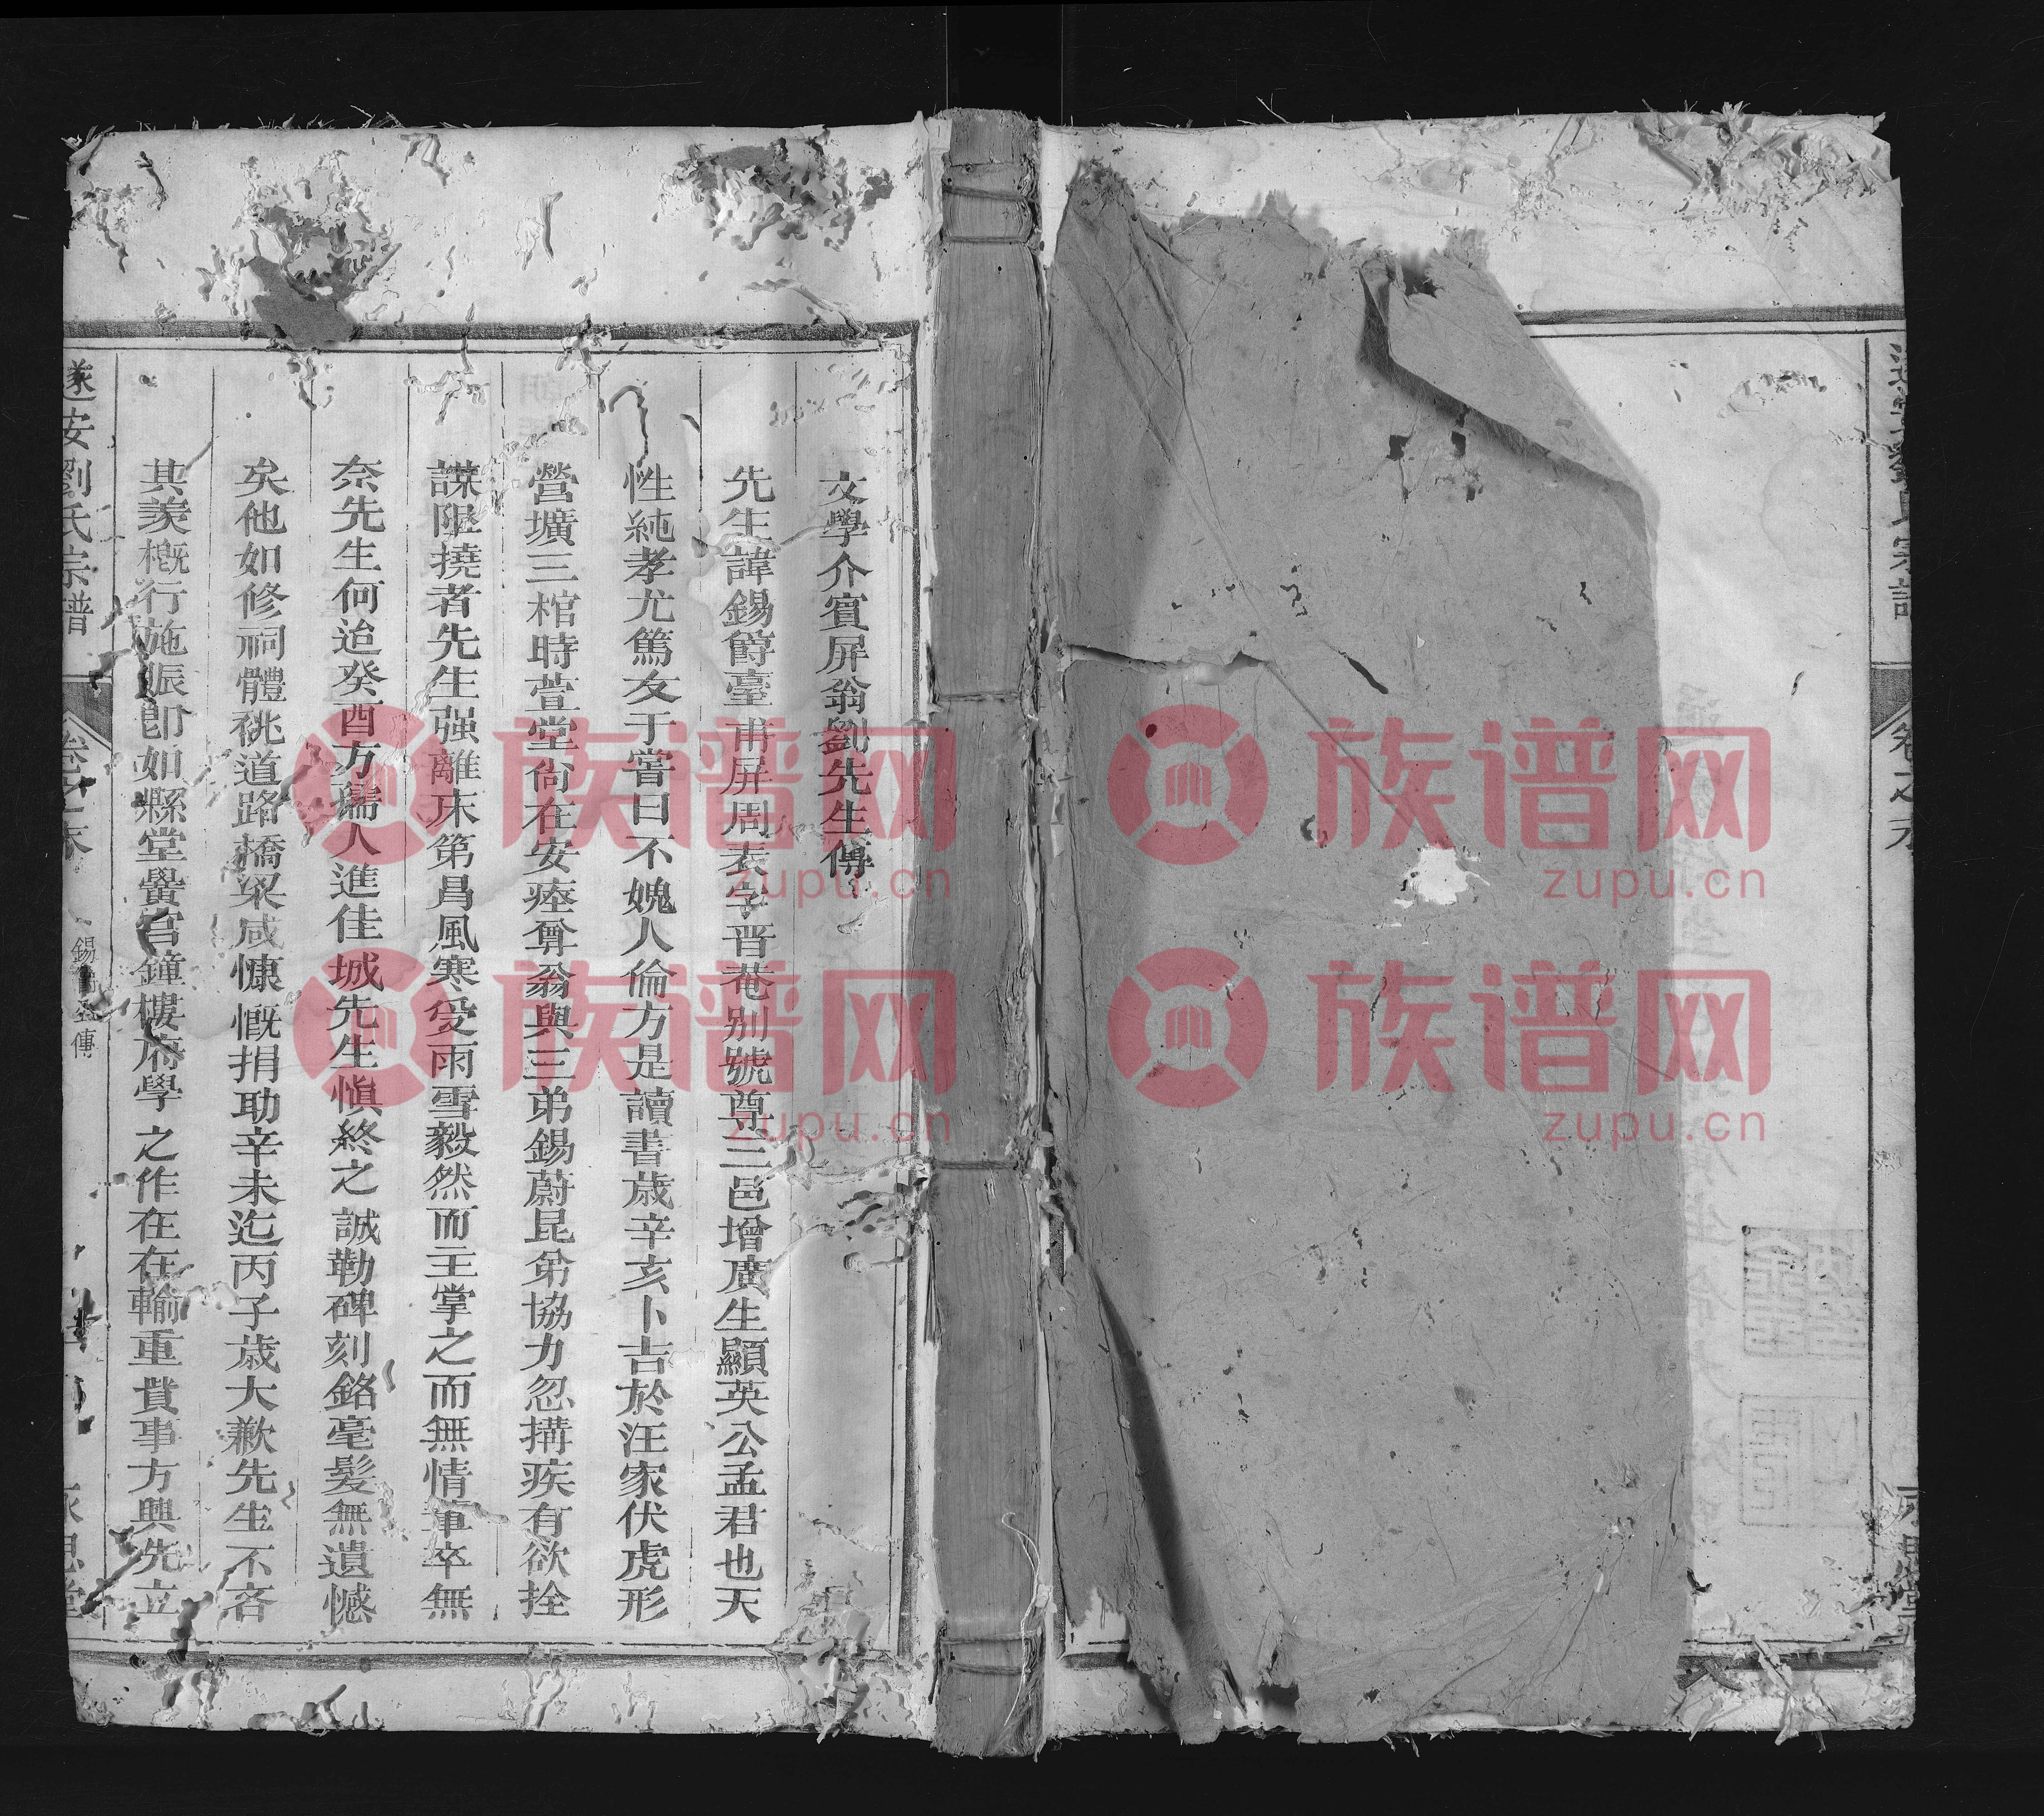 文學介賓屏翁劉先生傳
先生諱錫爵臺甫屏周表字晋菴别號尊三邑增廣生顯英公孟君也天
性純孝尤篤友于嘗曰不媿人倫方是讀書歲辛亥卜吉於汪家伏虎形
營壙三棺時萱堂尚在安瘞尊翁與三弟錫蔚昆弟協力忽搆疾有欲拴
謀阻撓者先生强離床第昌風寒受雨雪毅然而主掌之而無情車卒無
奈先生何迨癸酉方孺人進佳城先生愼終之誠勒碑刻銘毫髮無遺憾
矣他如修祠體祧道路橋梁咸慷慨捐助辛未迄丙子歲大歉先生不吝
其羨槪行施賑即如縣堂黌宫鐘樓府學之作在在輸重貲事方興先立
遂安劉氏宗譜
卷之末
錫爵公傳
永思堂
族谱网
zupu.cn
族谱网
zupu.cn
族谱网
zupu.cn
族谱网
zupu.cn